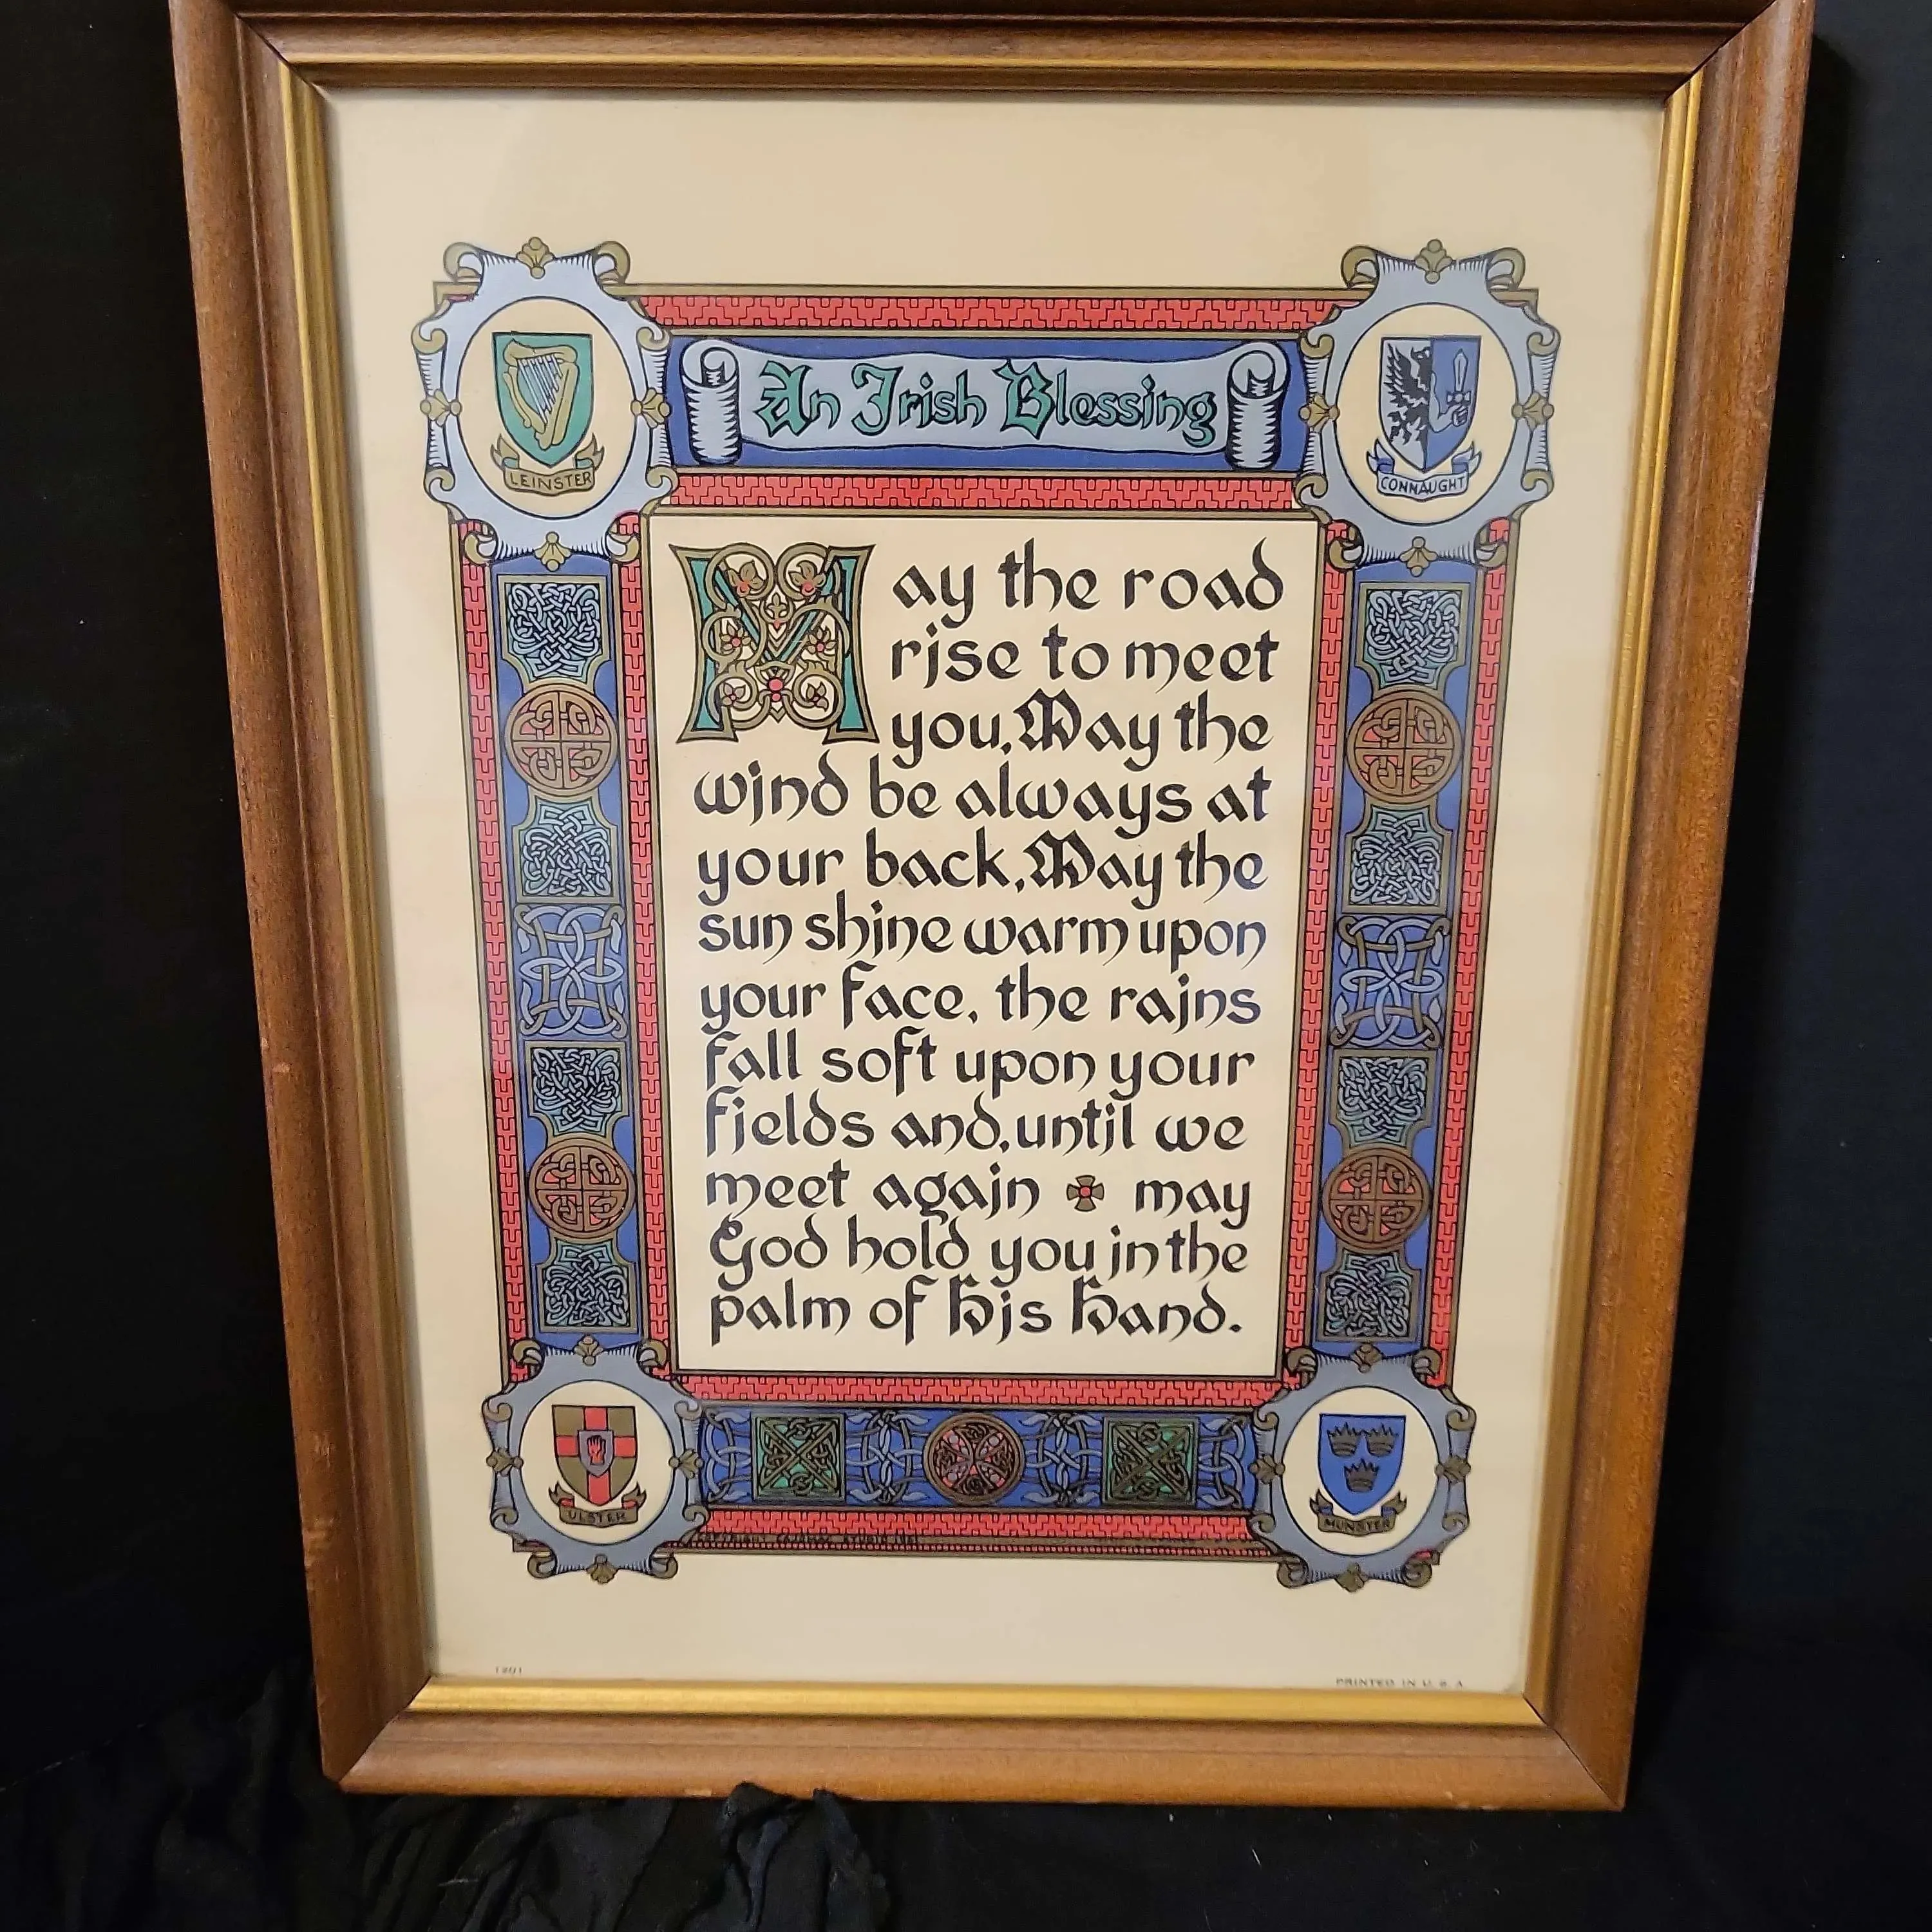 An Irish Blessing
LEINSTER
CONNAUGHT
May the road
rise to meet
you, May the
wind be always at
your back, May the
sun shine warm upon
your face, the rains
fall soft upon your
fields and, until we
meet again may
God hold you in the
palm of His Hand.
ULSTER
MUNSTER
1201
PRINTED IN U.S.A.